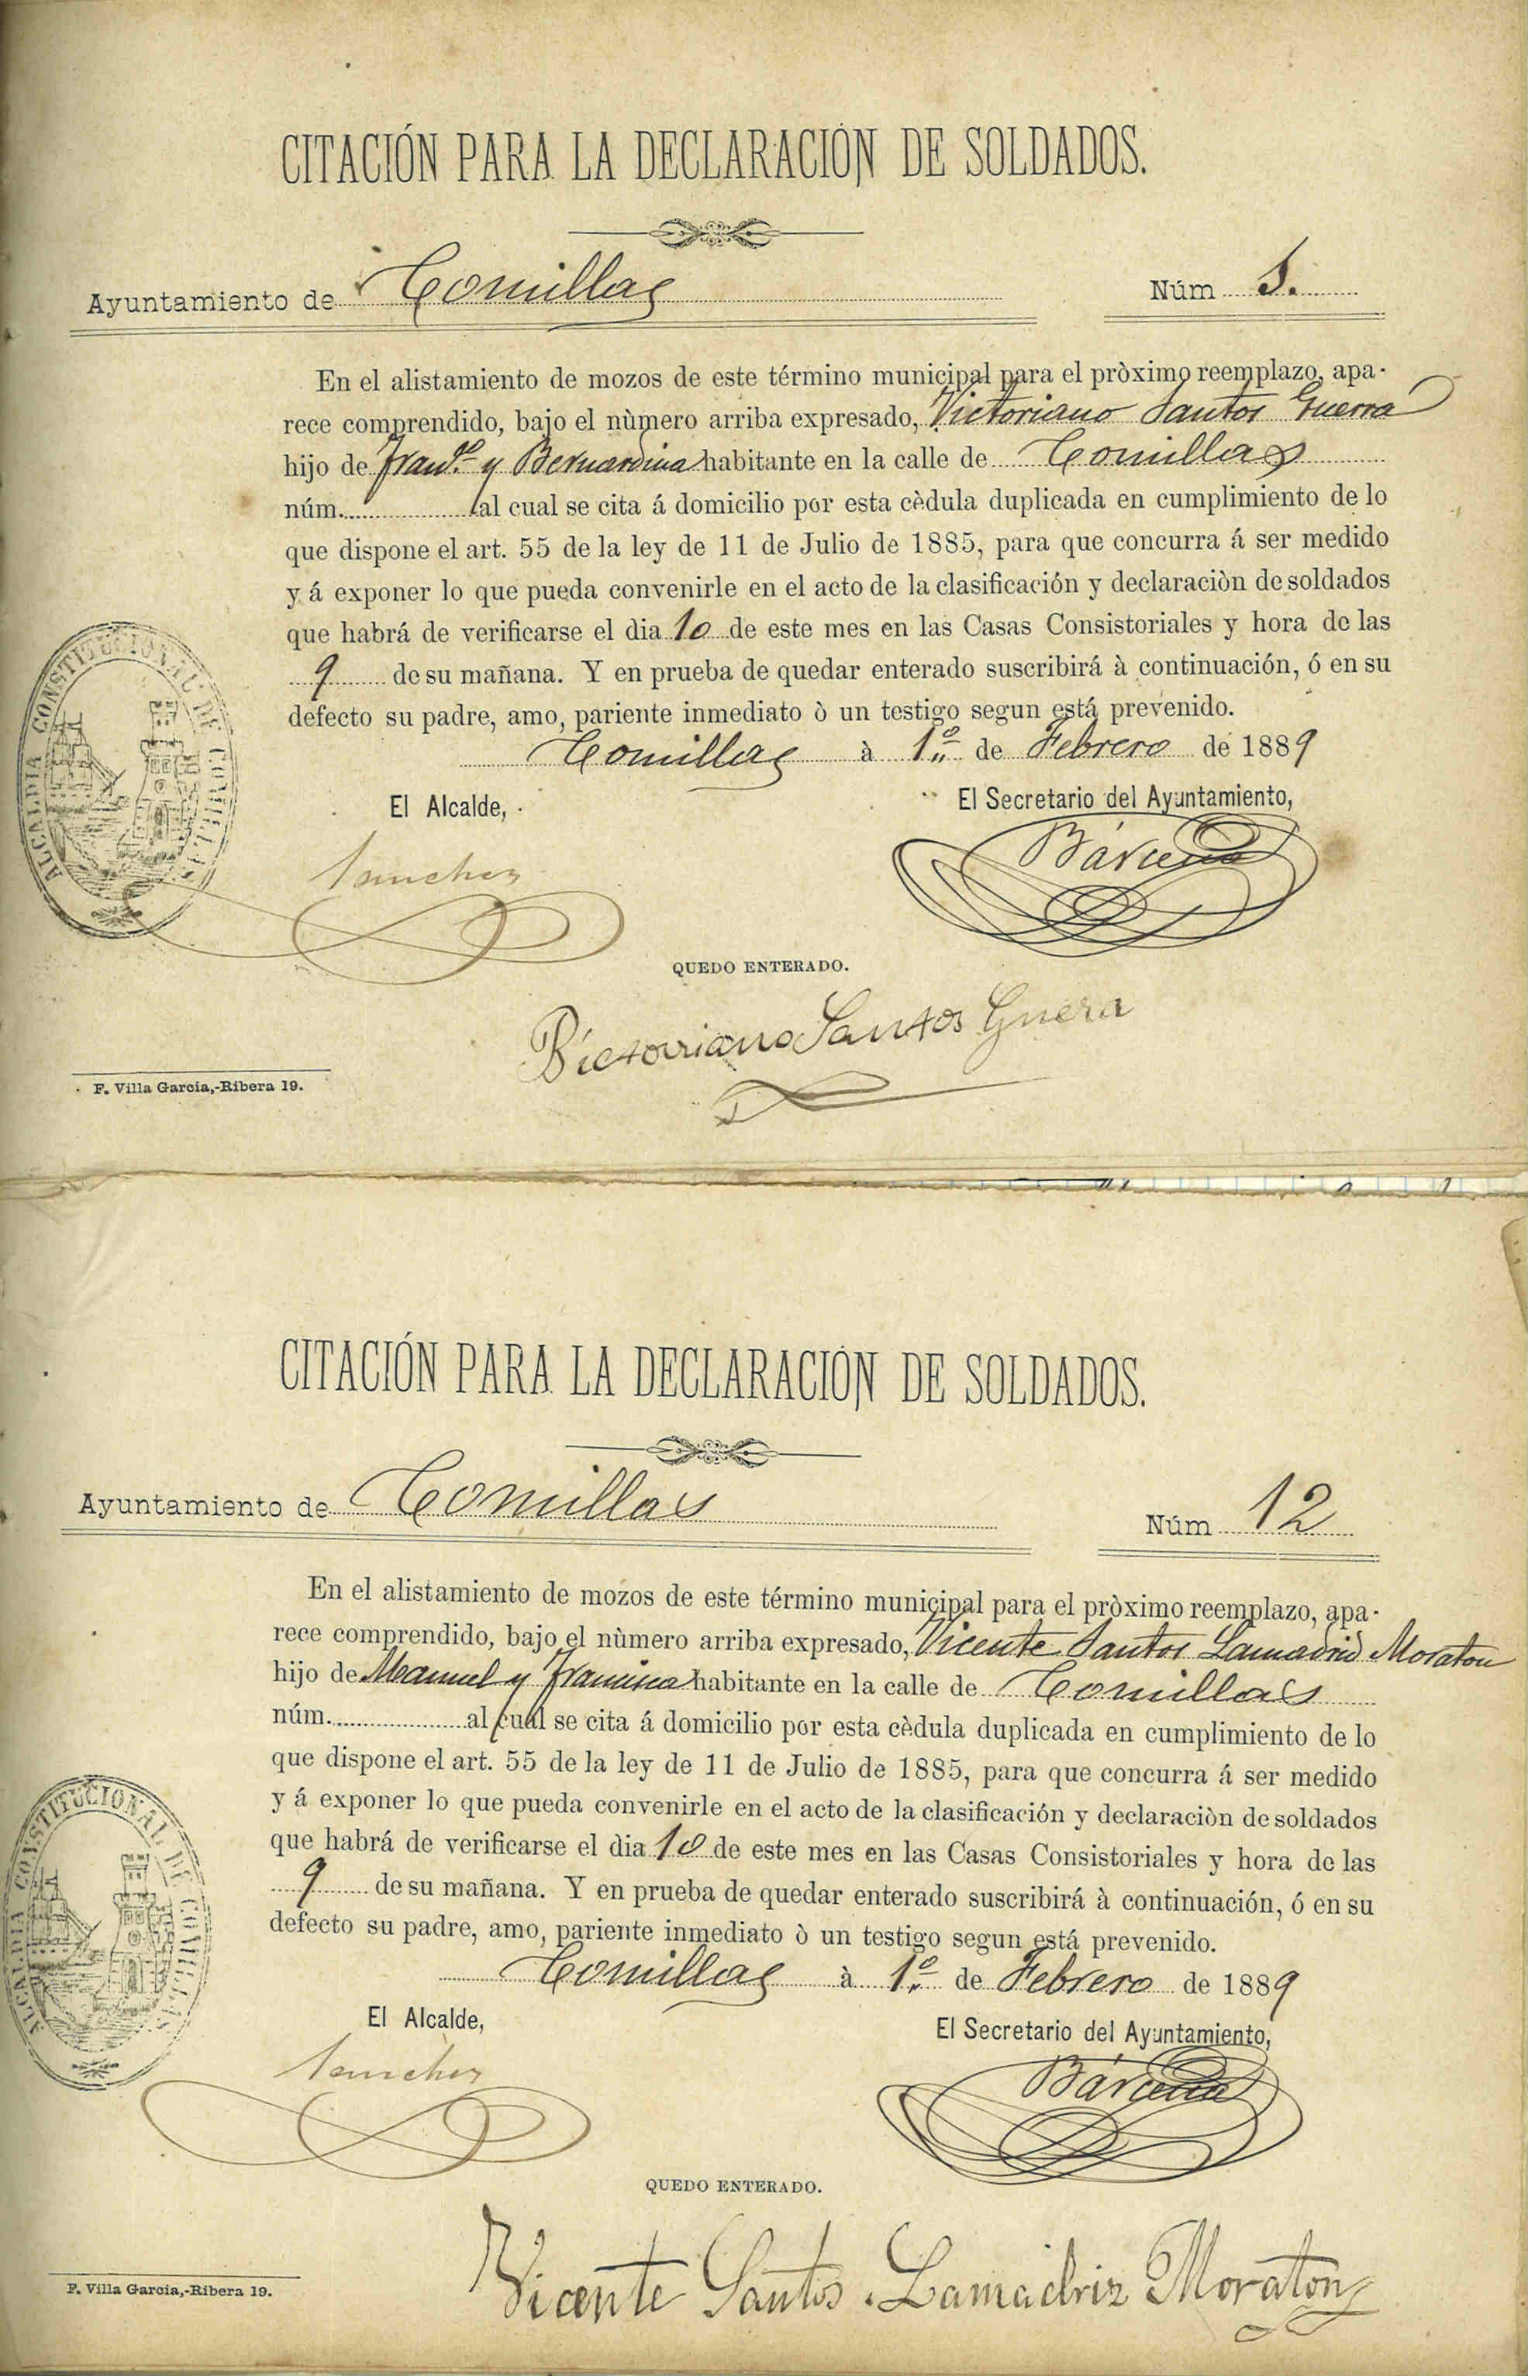 CITACIÓN PARA LA DECLARACIÓN DE SOLDADOS.
Ayuntamiento de Comillas Núm 5.
En el alistamiento de mozos de este término municipal para el pròximo reemplazo, apa-
rece comprendido, bajo el nùmero arriba expresado, Victoriano Santos Guerra
hijo de Franco y Bernardina habitante en la calle de Comillas
núm. al cual se cita á domicilio por esta cèdula duplicada en cumplimiento de lo
que dispone el art. 55 de la ley de 11 de Julio de 1885, para que concurra á ser medido
y á exponer lo que pueda convenirle en el acto de la clasificación y declaraciòn de soldados
que habrá de verificarse el dia 10 de este mes en las Casas Consistoriales y hora de las
9 de su mañana. Y en prueba de quedar enterado suscribirá à continuación, ó en su
defecto su padre, amo, pariente inmediato ò un testigo segun está prevenido.
Comillas à 1º de Febrero de 1889
El Alcalde, El Secretario del Ayuntamiento,
Sanchez Bárcena
ALCALDIA CONSTITUCIONAL DE COMILLAS
QUEDO ENTERADO.
Bictorriano Santos Guera
F. Villa Garcia,-Ribera 19.
CITACIÓN PARA LA DECLARACIÓN DE SOLDADOS.
Ayuntamiento de Comillas Núm 12
En el alistamiento de mozos de este término municipal para el pròximo reemplazo, apa-
rece comprendido, bajo el nùmero arriba expresado, Vicente Santos Lamadrid Moraton
hijo de Manuel y Francisca habitante en la calle de Comillas
núm. al cual se cita á domicilio por esta cèdula duplicada en cumplimiento de lo
que dispone el art. 55 de la ley de 11 de Julio de 1885, para que concurra á ser medido
y á exponer lo que pueda convenirle en el acto de la clasificación y declaraciòn de soldados
que habrá de verificarse el dia 10 de este mes en las Casas Consistoriales y hora de las
9 de su mañana. Y en prueba de quedar enterado suscribirá à continuación, ó en su
defecto su padre, amo, pariente inmediato ò un testigo segun está prevenido.
Comillas à 1º de Febrero de 1889
El Alcalde, El Secretario del Ayuntamiento,
Sanchez Bárcena
ALCALDIA CONSTITUCIONAL DE COMILLAS
QUEDO ENTERADO.
Vicente Santos Lamadriz Moraton
F. Villa Garcia,-Ribera 19.